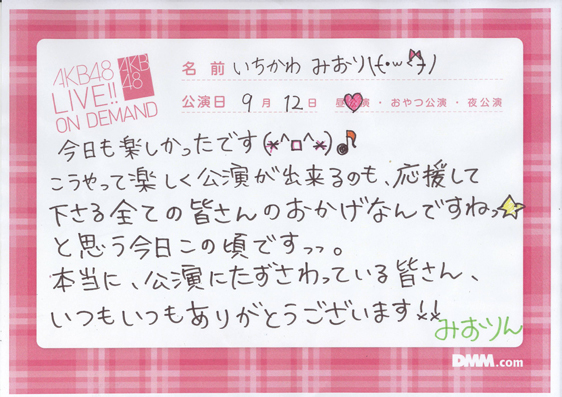 AKB48
LIVE!!
ON DEMAND
AKB
48
名前 いちかわ みおり
公演日 9月 12日 昼公演・おやつ公演・夜公演
今日も楽しかったです(*^□^*)♪
こうやって楽しく公演が出来るのも、応援して
下さる全ての皆さんのおかげなんですねっ☆
と思う今日この頃ですっっ。
本当に、公演にたずさわっている皆さん、
いつもいつもありがとうございます!!
みおりん
DMM.com